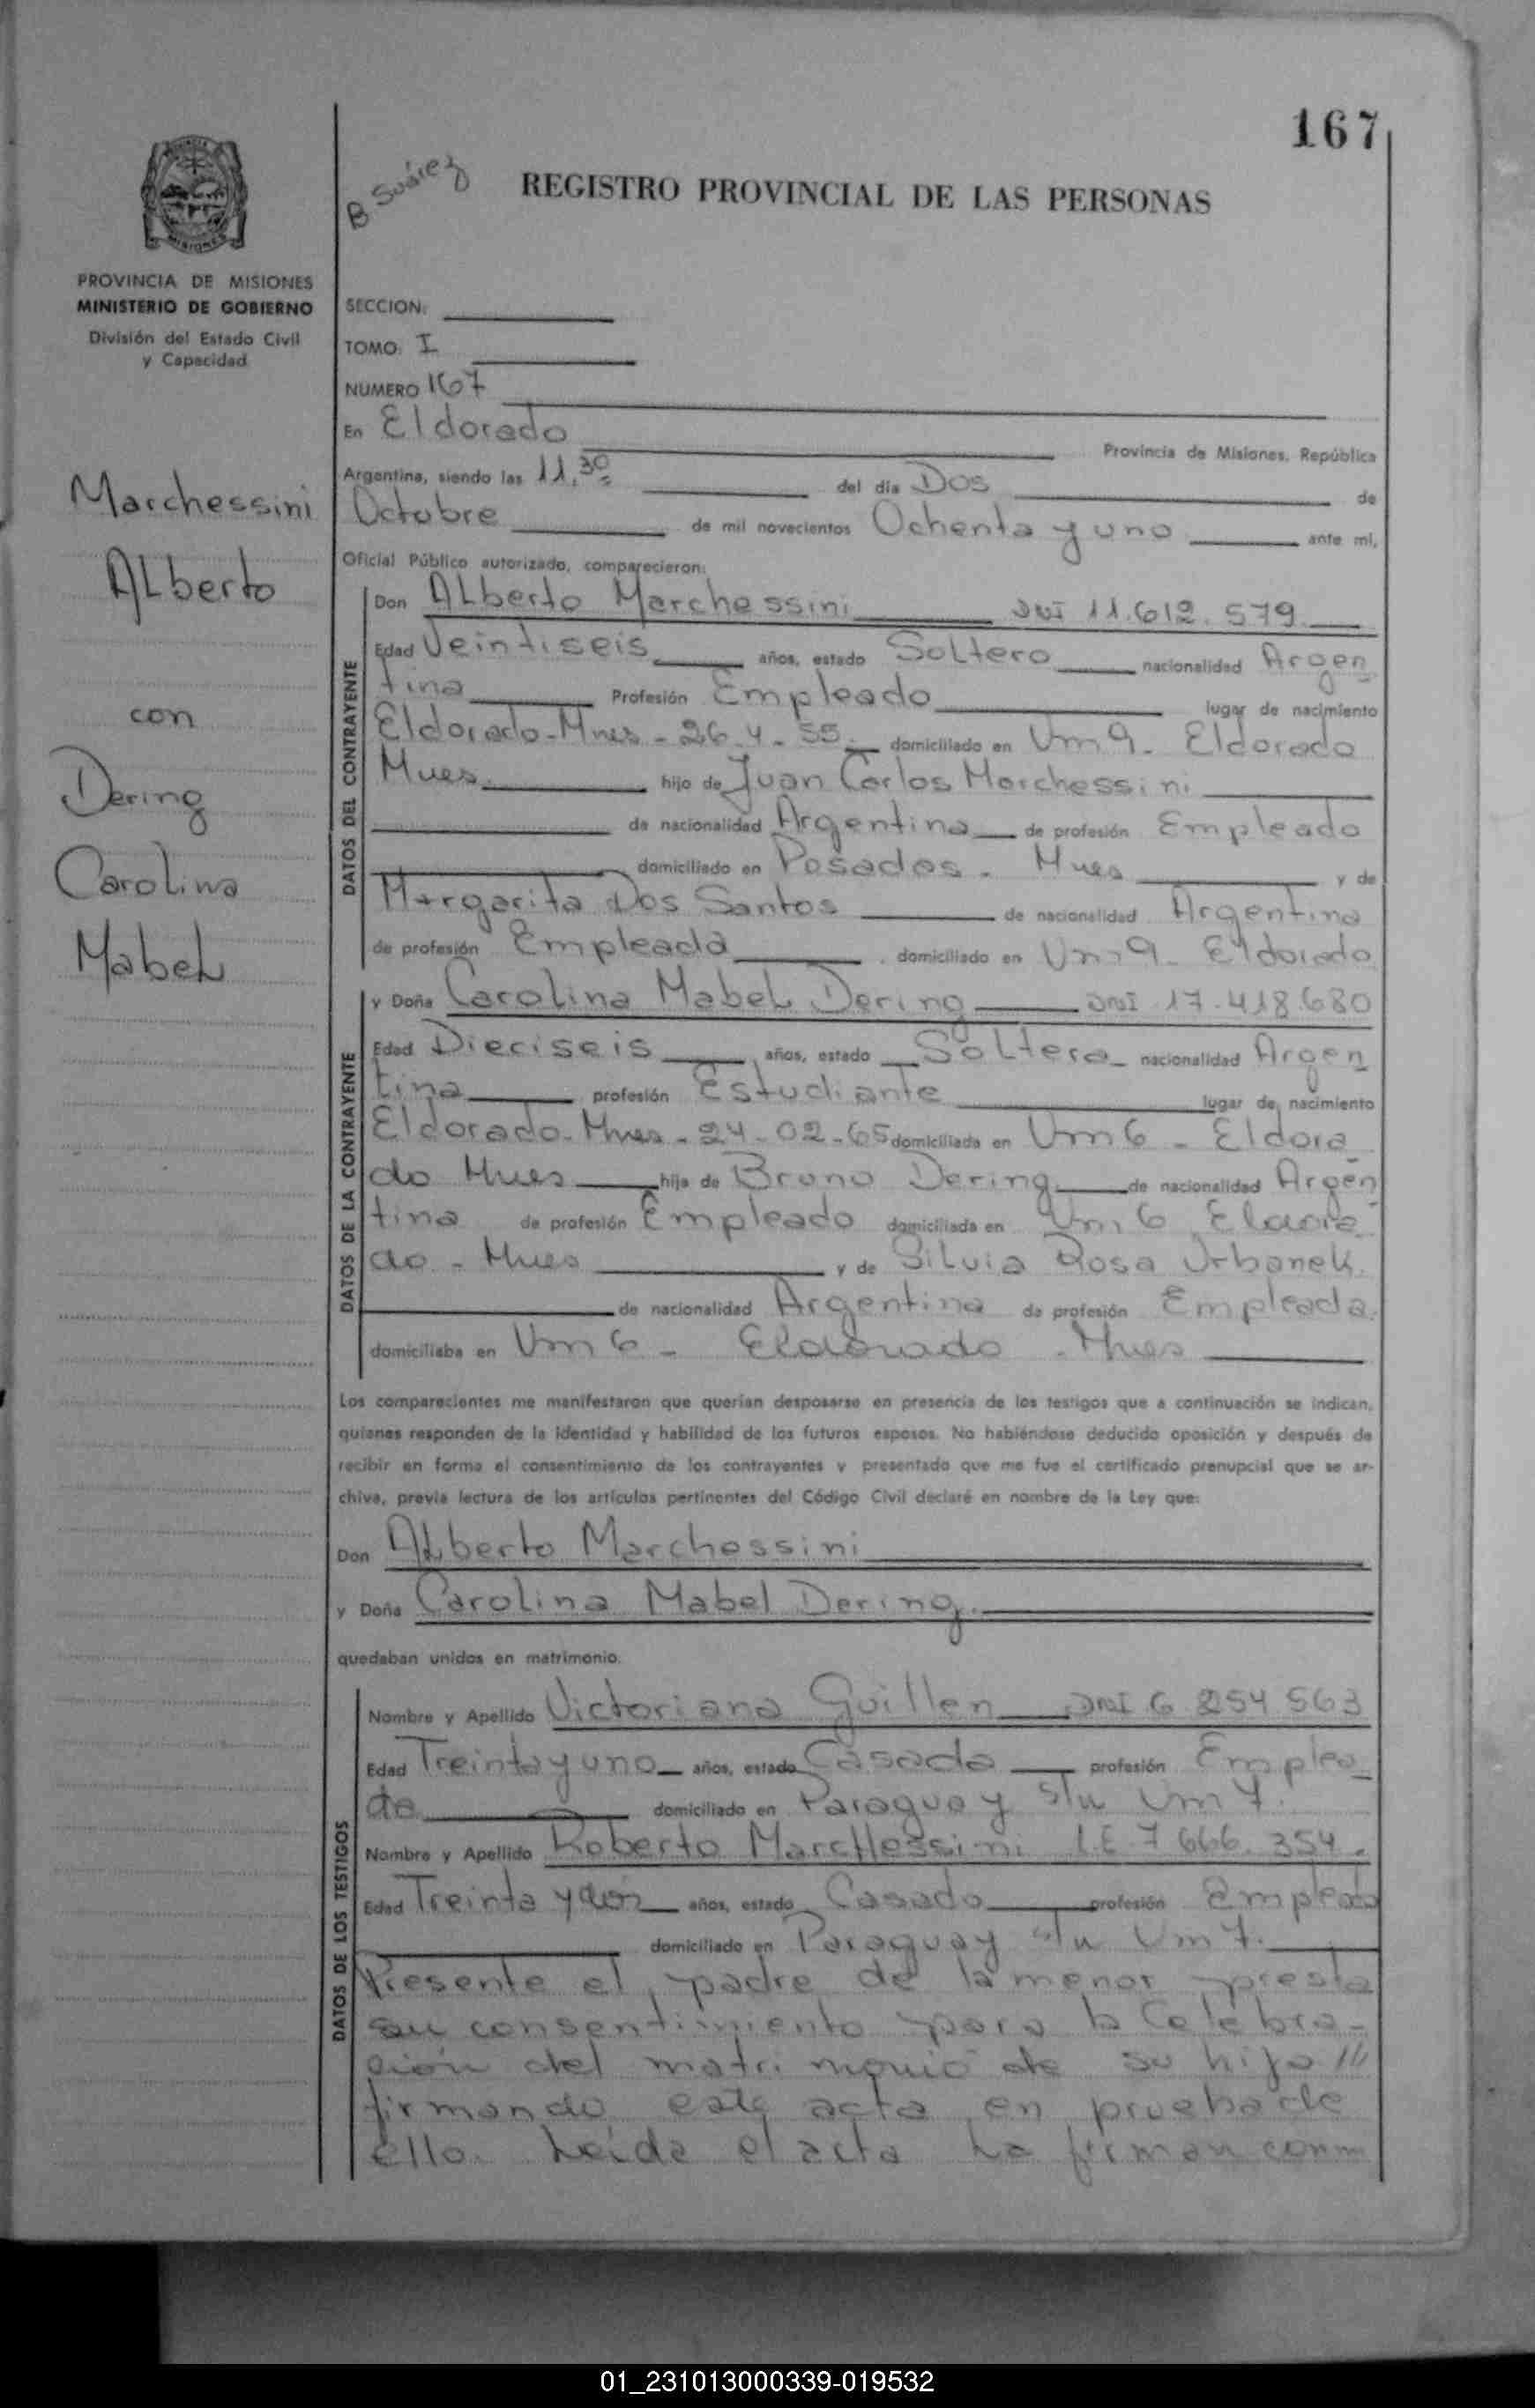 167
B Suárez
REGISTRO PROVINCIAL DE LAS PERSONAS
MISIONES
PROVINCIA DE MISIONES
MINISTERIO DE GOBIERNO
División del Estado Civil
y Capacidad
Marchessini
Alberto
con
Dering
Carolina
Mabel
SECCION:
TOMO: I
NUMERO 167
En Eldorado Provincia de Misiones, República
Argentina, siendo las 11,30 del día Dos de
Octubre de mil novecientos Ochenta y uno ante mí,
Oficial Público autorizado, comparecieron:
DATOS DEL CONTRAYENTE
Don Alberto Marchessini DNI 11.612.579
Edad Veintiseis años, estado Soltero nacionalidad Argen
tina Profesión Empleado lugar de nacimiento
Eldorado-Mnes-26-4-55- domiciliado en Km 9- Eldorado
Mnes. hijo de Juan Carlos Marchessini
de nacionalidad Argentina de profesión Empleado
domiciliado en Posadas - Mnes y de
Margarita Dos Santos de nacionalidad Argentina
de profesión Empleada domiciliado en Km 9- Eldorado
DATOS DE LA CONTRAYENTE
y Doña Carolina Mabel Dering DNI 17.418.680
Edad Dieciseis años, estado Soltera nacionalidad Argen
tina profesión Estudiante lugar de nacimiento
Eldorado-Mnes-24-02-65 domiciliada en Km 6 - Eldora
do Mnes hija de Bruno Dering de nacionalidad Argen
tina de profesión Empleado domiciliada en Km 6 Eldora
do - Mnes y de Silvia Rosa Urbanek
de nacionalidad Argentina de profesión Empleada.
domiciliaba en Km 6 - Eldorado - Mnes
Los comparecientes me manifestaron que querían desposarse en presencia de los testigos que a continuación se indican,
quienes responden de la identidad y habilidad de los futuros esposos. No habiéndose deducido oposición y después de
recibir en forma el consentimiento de los contrayentes y presentado que me fue el certificado prenupcial que se ar-
chiva, previa lectura de los artículos pertinentes del Código Civil declaré en nombre de la Ley que:
Don Alberto Marchessini
y Doña Carolina Mabel Dering.
quedaban unidos en matrimonio.
DATOS DE LOS TESTIGOS
Nombre y Apellido Victoriana Guillen DNI 6 254 563
Edad Treinta y uno años, estado Casada profesión Emplea
da domiciliado en Paraguay s/n Km 7.
Nombre y Apellido Roberto Marchessini L.E 7 666. 354.
Edad Treinta y dos años, estado Casado profesión Empleado
domiciliado en Paraguay s/n Km 7.
Presente el padre de la menor presta
su consentimiento para la celebra-
ción del matrimonio de su hija ///
firmando este acta en prueba de
ello. Leida el acta la firman conm
01_231013000339-019532